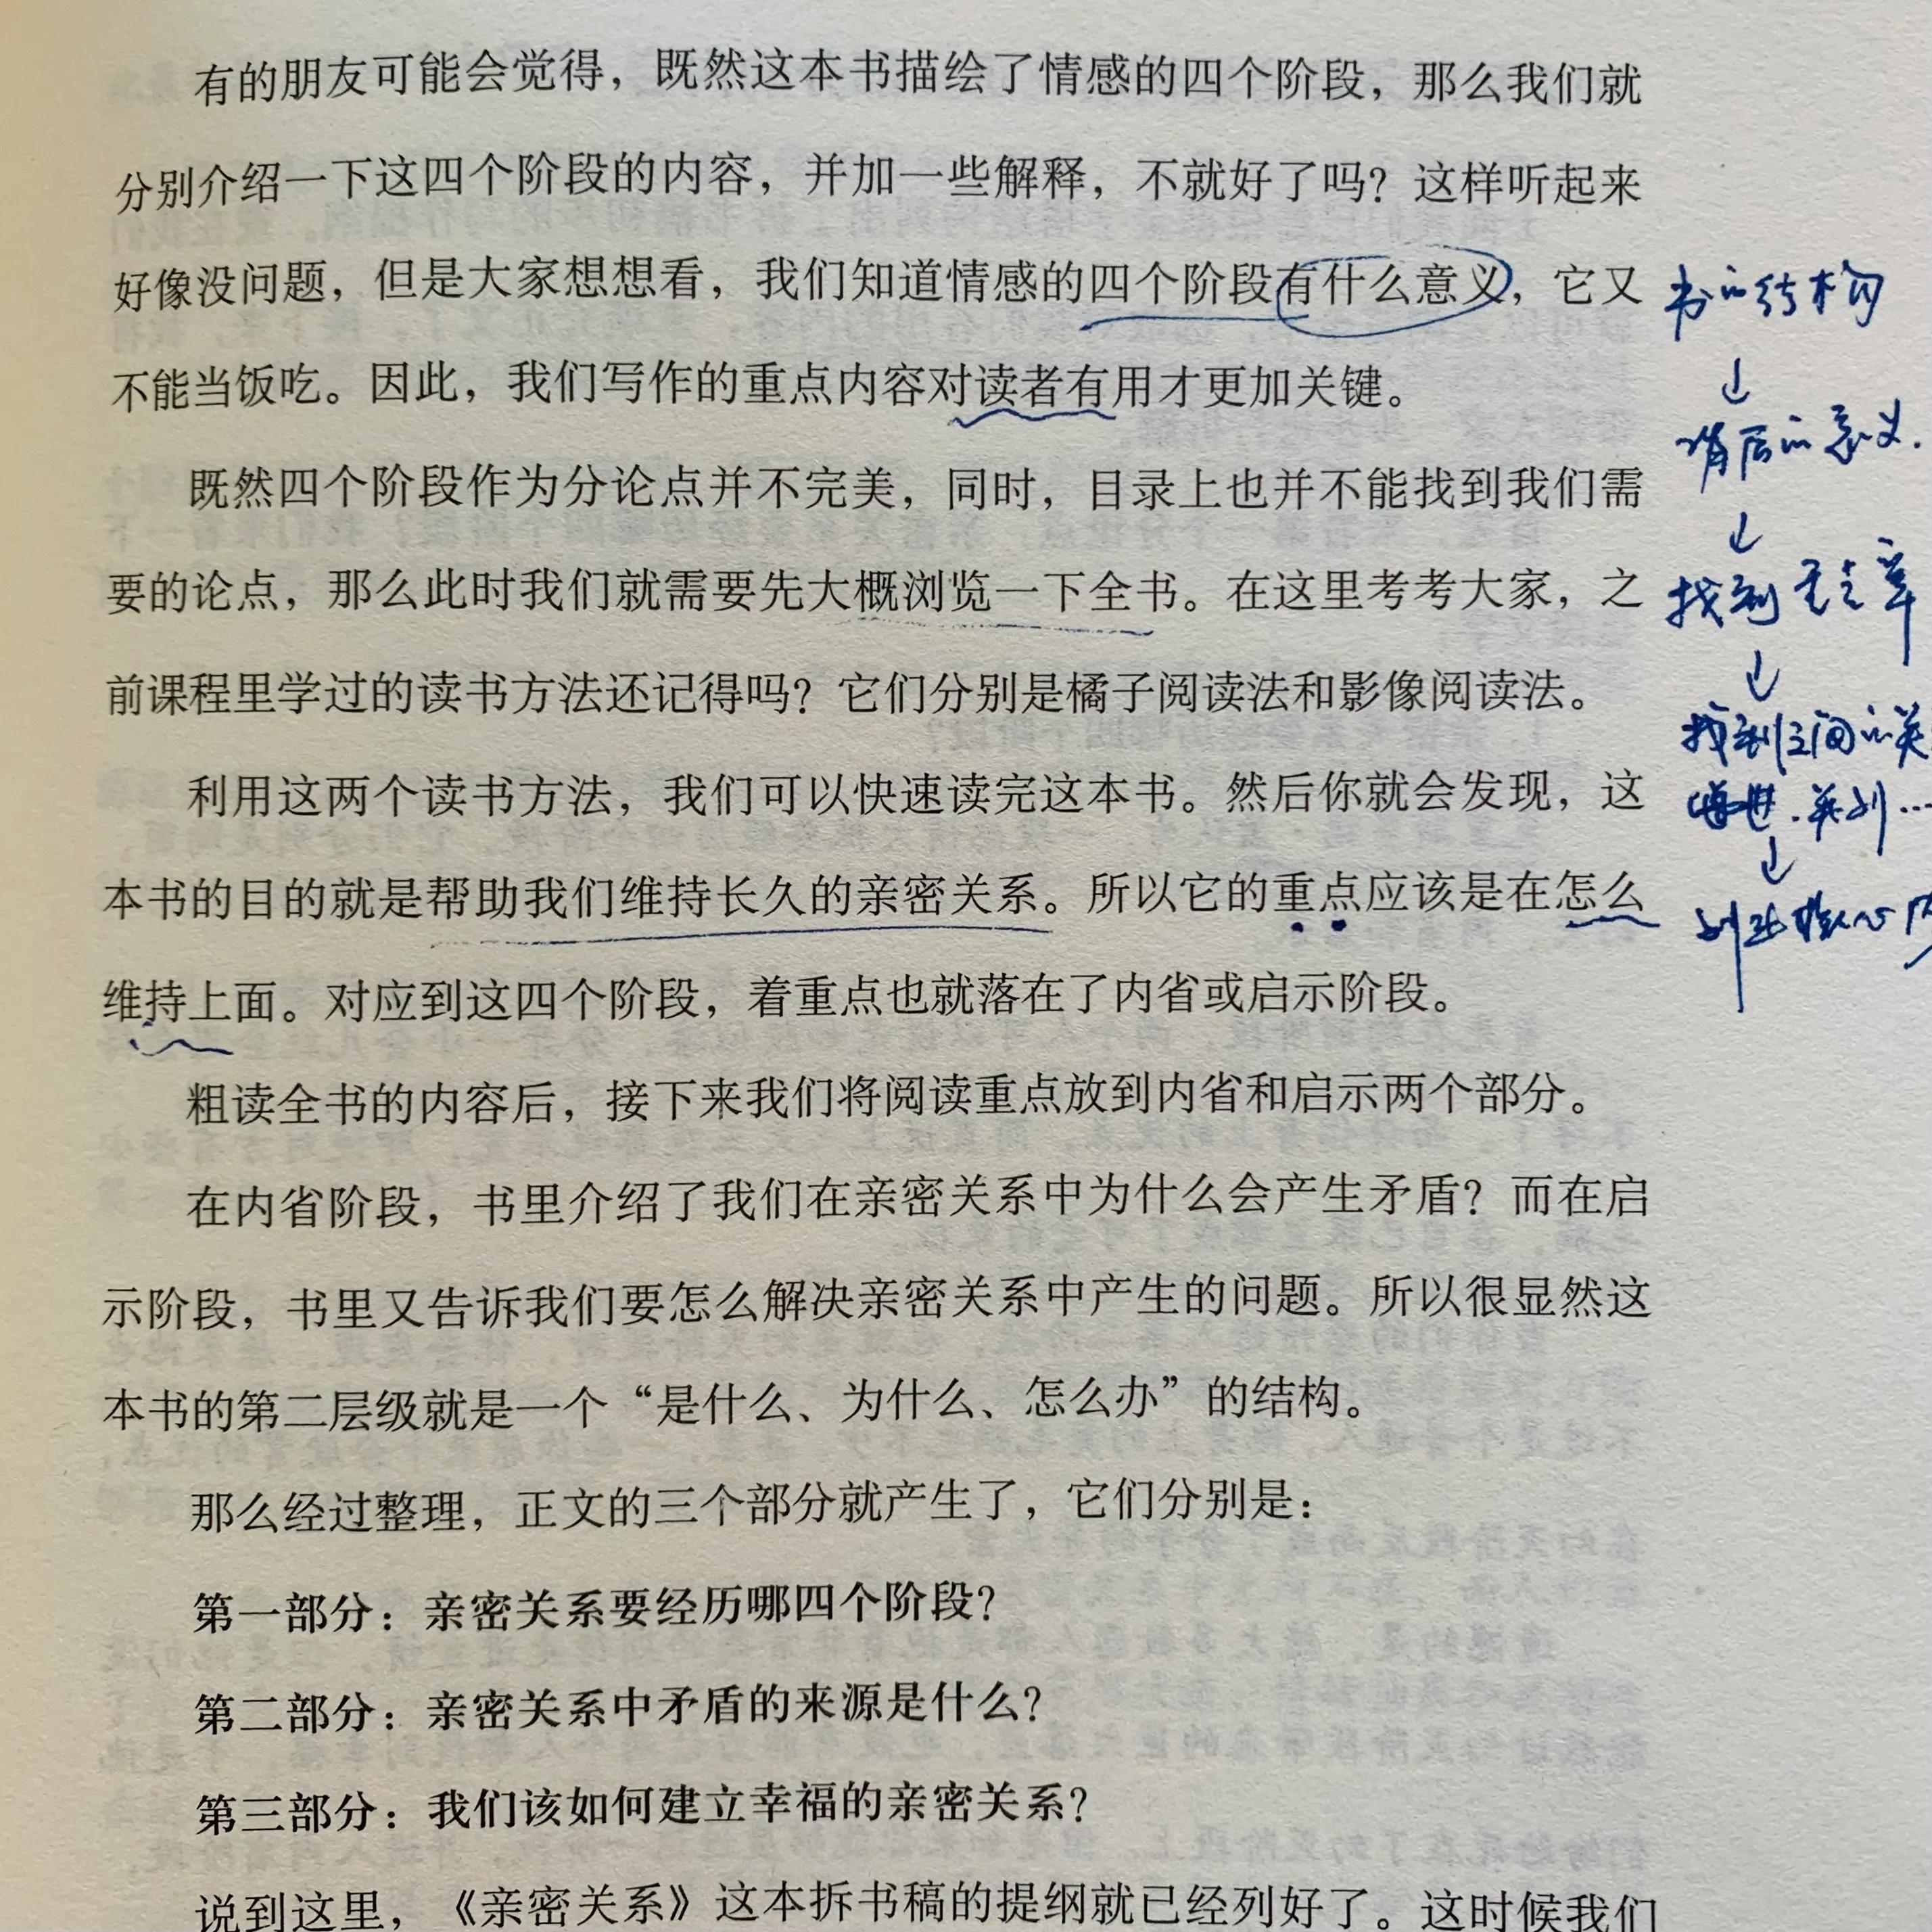 有的朋友可能会觉得，既然这本书描绘了情感的四个阶段，那么我们就
分别介绍一下这四个阶段的内容，并加一些解释，不就好了吗？这样听起来
好像没问题，但是大家想想看，我们知道情感的四个阶段有什么意义，它又
不能当饭吃。因此，我们写作的重点内容对读者有用才更加关键。
既然四个阶段作为分论点并不完美，同时，目录上也并不能找到我们需
要的论点，那么此时我们就需要先大概浏览一下全书。在这里考考大家，之
前课程里学过的读书方法还记得吗？它们分别是橘子阅读法和影像阅读法。
利用这两个读书方法，我们可以快速读完这本书。然后你就会发现，这
本书的目的就是帮助我们维持长久的亲密关系。所以它的重点应该是在怎么
维持上面。对应到这四个阶段，着重点也就落在了内省或启示阶段。
粗读全书的内容后，接下来我们将阅读重点放到内省和启示两个部分。
在内省阶段，书里介绍了我们在亲密关系中为什么会产生矛盾？而在启
示阶段，书里又告诉我们要怎么解决亲密关系中产生的问题。所以很显然这
本书的第二层级就是一个“是什么、为什么、怎么办”的结构。
那么经过整理，正文的三个部分就产生了，它们分别是：
第一部分：亲密关系要经历哪四个阶段？
第二部分：亲密关系中矛盾的来源是什么？
第三部分：我们该如何建立幸福的亲密关系？
说到这里，《亲密关系》这本拆书稿的提纲就已经列好了。这时候我们
书的结构
↓
背后的意义.
↓
找到重点章
↓
找到之间的关
递进.并列…
↓
列出核心内